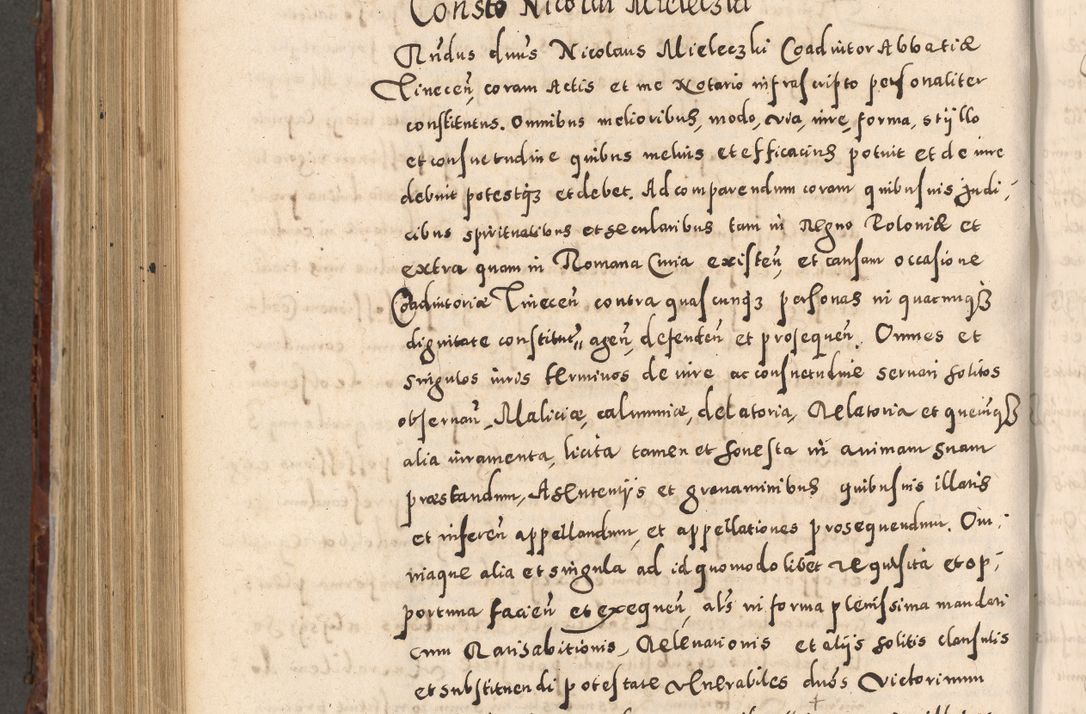 Consto Nicolai Mieleczki
Rndus dnus Nicolaus Mieleczki Coadiutor Abbatiæ
Tinecen, coram Actis et me Notario infrascripto personaliter
constitutus. Omnibus melioribus, modo, via, iure, forma, styllo
et consuetudine quibus melius et efficacius potuit et de iure
debuit potestq3 et debet. Ad comparendum coram quibusuis Judi-
cibus spiritualibus et secularibus tam in Regno Poloniæ et
extra quam in Romana Curia existen, et causam occasione
Coadiutoriæ Tinecen contra quascunq3 personas in quacunq3
dignitate constitut, agen, defenden et prosequen. Omnes et
singulos iuris terminos de iure ac consuetudine seruari solitos
obseruan, Maliciæ, calumniæ, delatoria, Relatoria et queuisq3
alia iuramenta, licita tamen et honesta in animam suam
præstandum, A sententijs et grauaminibus quibusuis illatis
et inferen appellandum, et appellationes prosequendum. Om-
niaque alia et singula ad id quomodolibet requisita et op-
portuna facien et exequen, als in forma plenissima mandati
cum Ratihabitionis, Releuationis et alijs solitis clausulis
et substituendi potestate Venerabiles dnos Victorinum